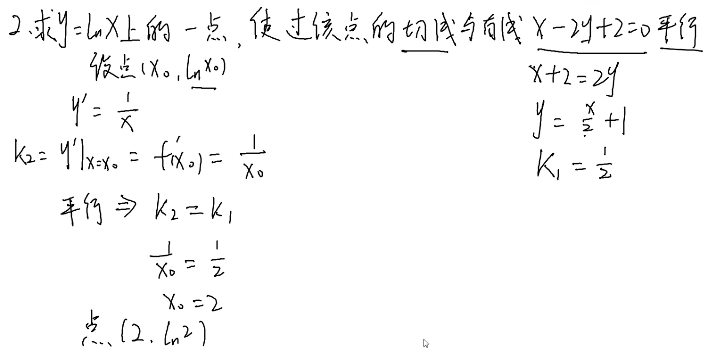 2.求y=lnx上的一点,使过该点的切线与直线x-2y+2=0平行
设点(x₀,lnx₀)
y'=1/x
k₂=y'|x=x₀=f'(x₀)=1/x₀
平行⇒k₂=k₁
1/x₀=1/2
x₀=2
点(2,ln2)
x+2=2y
y=x/2+1
k₁=1/2